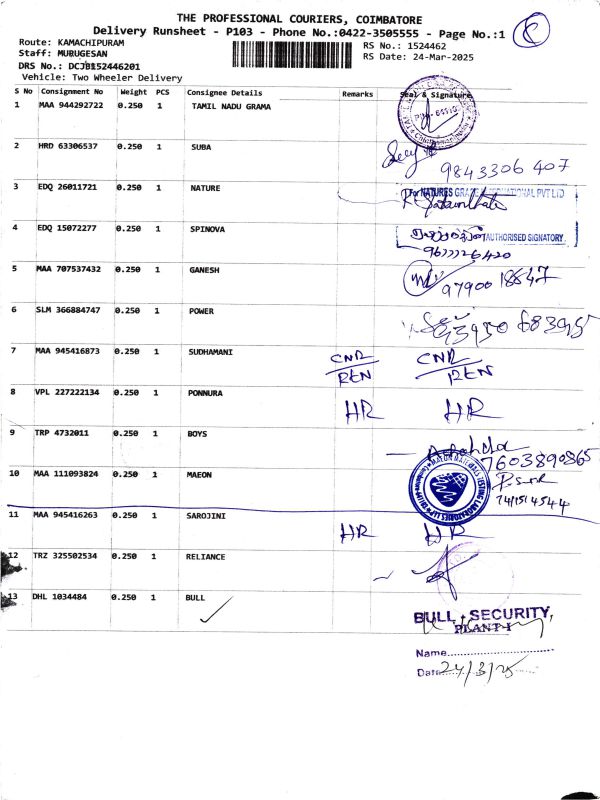 THE PROFESSIONAL COURIERS, COIMBATORE
Delivery Runsheet - P103 - Phone No.:0422-3505555 - Page No.:1
Route: KAMACHIPURAM
RS No.: 1524462
Staff: MURUGESAN
RS Date: 24-Mar-2025
DRS No.: DCJB152446201
Vehicle: Two Wheeler Delivery
S No Consignment No Weight PCS Consignee Details Remarks Seal & Signature
1 MAA 944292722 0.250 1 TAMIL NADU GRAMA
2 HRD 63306537 0.250 1 SUBA
9843306407
3 EDQ 26011721 0.250 1 NATURE
For NATURES PVT LTD
4 EDQ 15072277 0.250 1 SPINOVA
AUTHORISED SIGNATORY
5 MAA 707537432 0.250 1 GANESH
6 SLM 366884747 0.250 1 POWER
7 MAA 945416873 0.250 1 SUDHAMANI CNR CNR
RTN RTN
8 VPL 227222134 0.250 1 PONNURA HR HR
9 TRP 4732011 0.250 1 BOYS
7603890865
10 MAA 111093824 0.250 1 MAEON
11 MAA 945416263 0.250 1 SAROJINI HR HR
12 TRZ 325502534 0.250 1 RELIANCE
13 DHL 1034484 0.250 1 BULL
BULL SECURITY,
PLANT-I
Name
Date 24/3/25